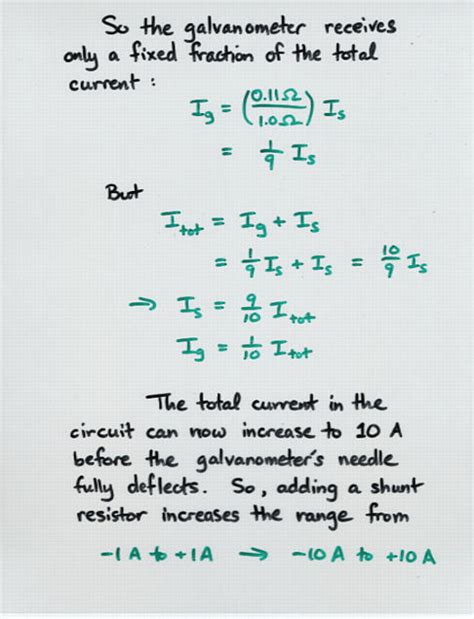 So the galvanometer receives
only a fixed fraction of the total
current :
I_g = (0.11Ω / 1.0Ω) I_s
= 1/9 I_s
But
I_tot = I_g + I_s
= 1/9 I_s + I_s = 10/9 I_s
→ I_s = 9/10 I_tot
I_g = 1/10 I_tot
The total current in the
circuit can now increase to 10 A
before the galvanometer's needle
fully deflects. So, adding a shunt
resistor increases the range from
-1 A to +1A → -10 A to +10 A